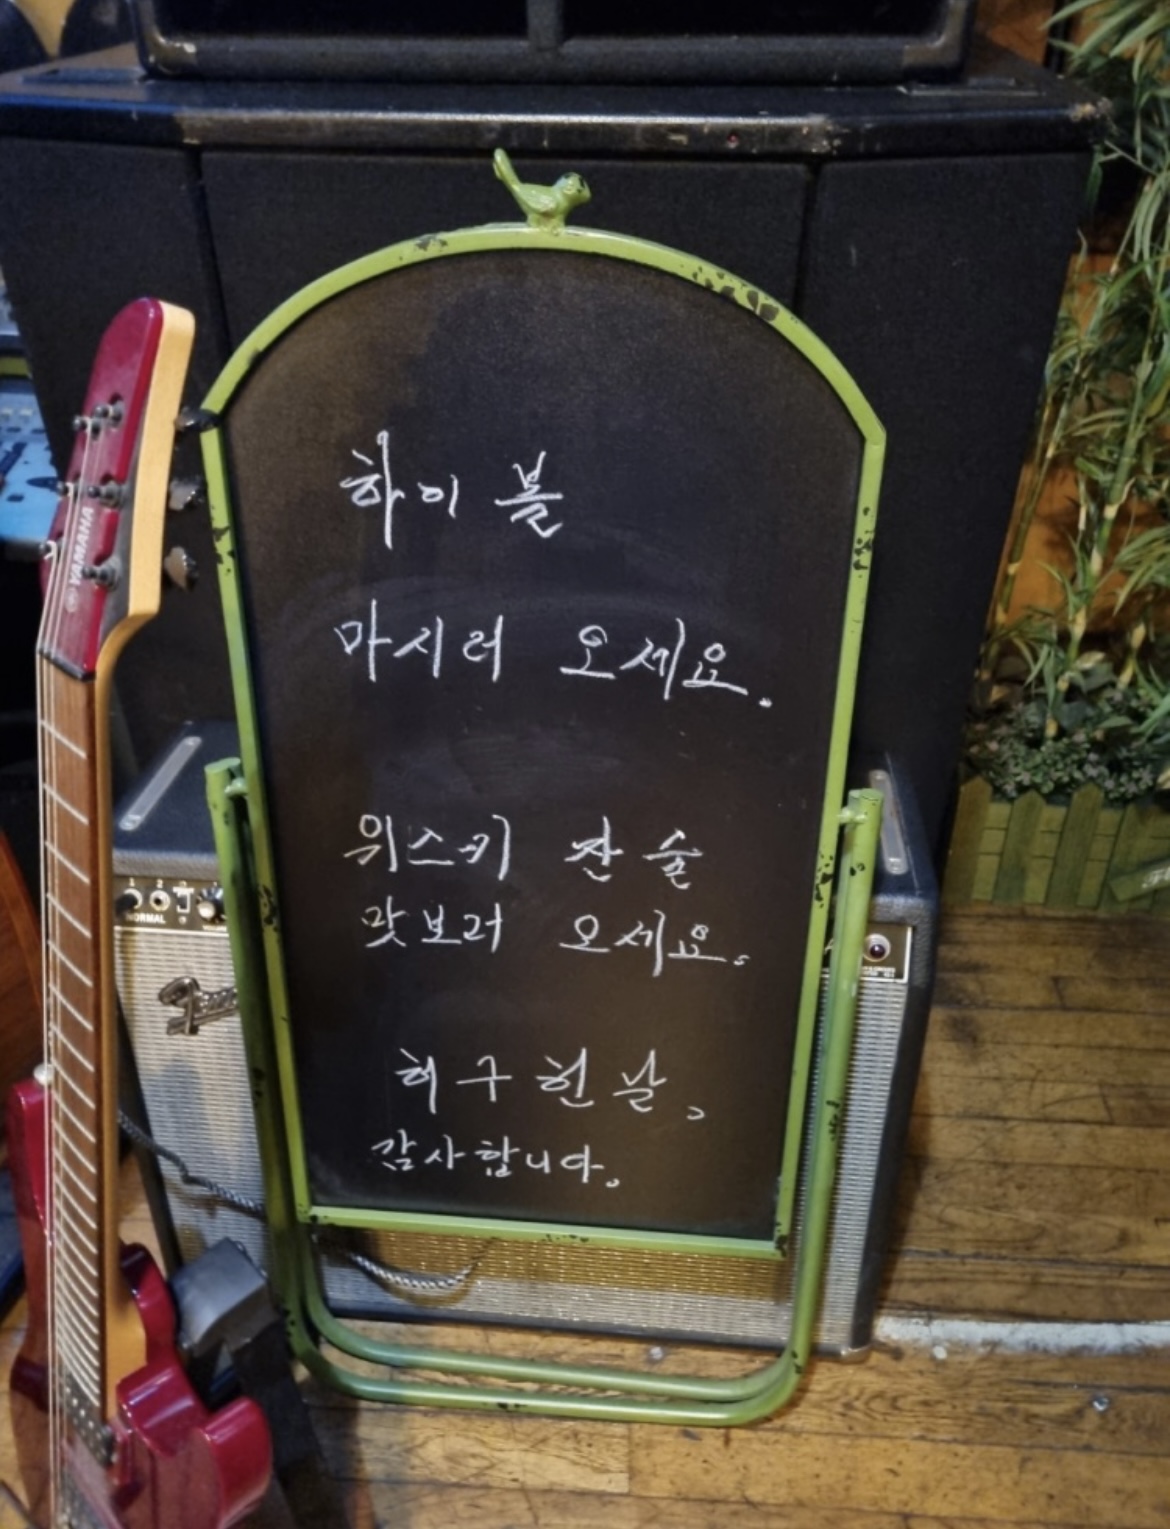 하이볼
마시러 오세요.
위스키 잔술
맛보러 오세요.
허구헌날.
감사합니다.
YAMAHA
1 2
NORMAL
Fender